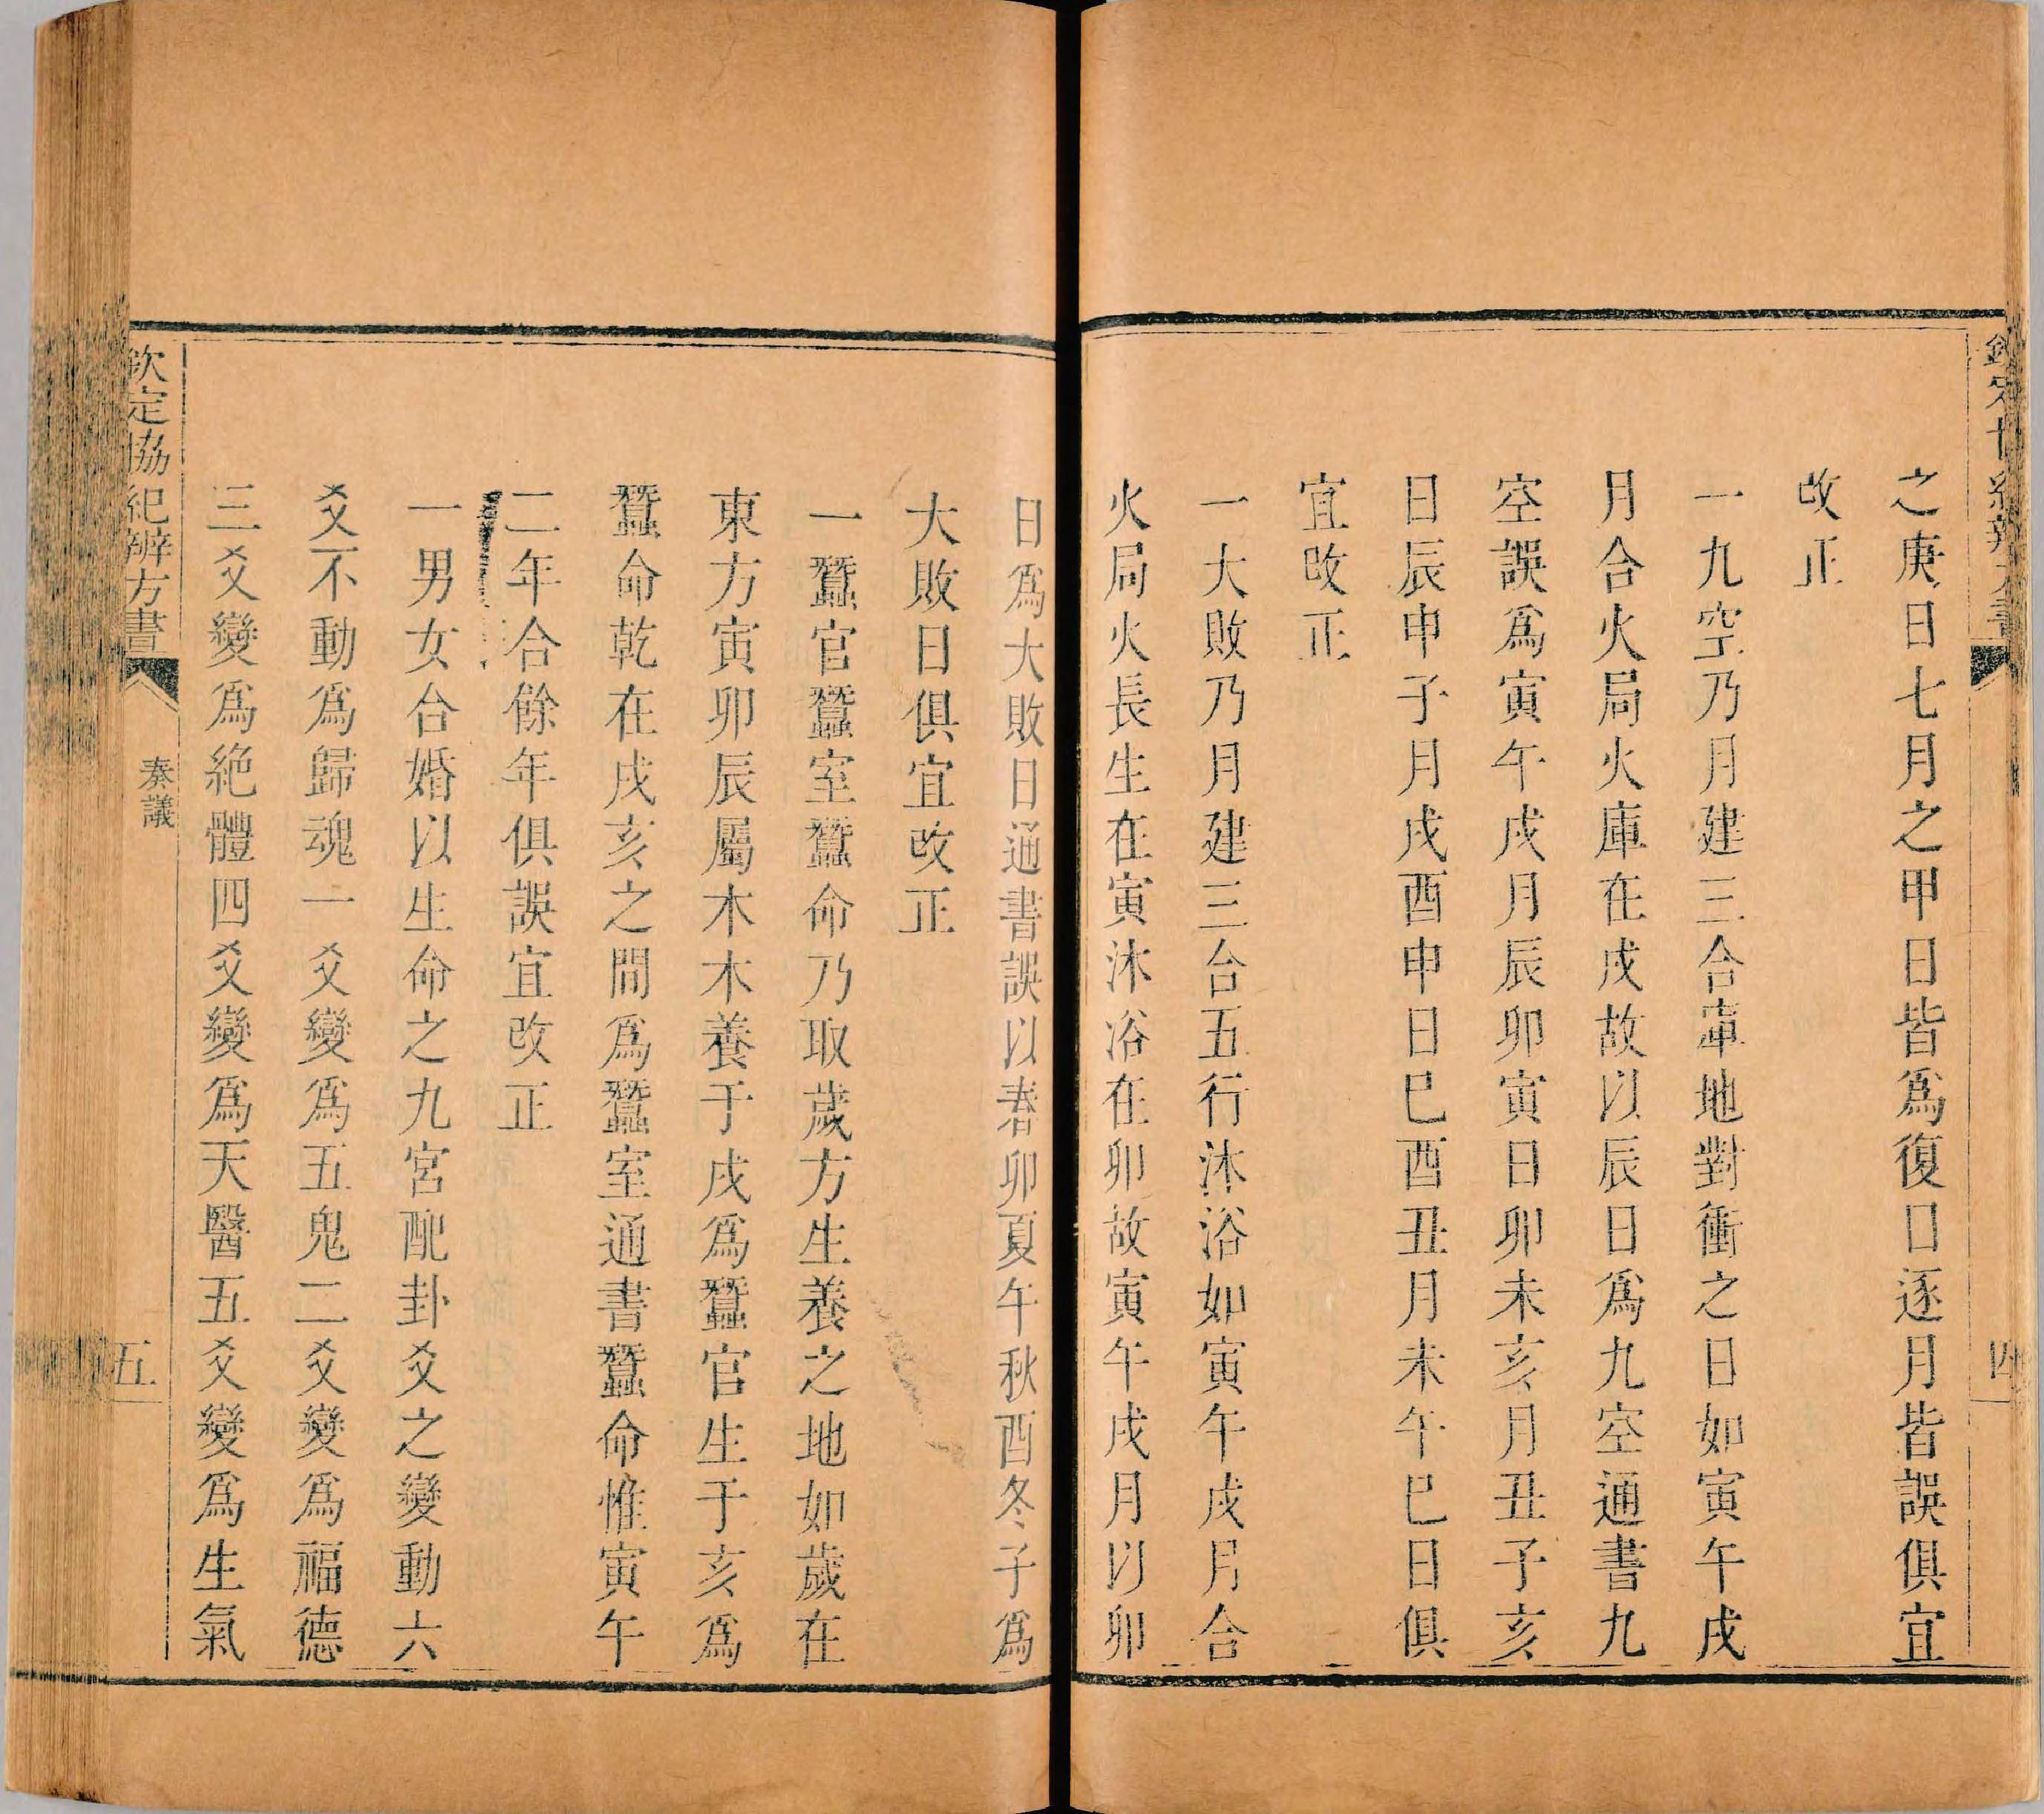 之庚日七月之甲日皆爲復日逐月皆誤俱宜
改正
一九空乃月建三合庫地對衝之日如寅午戌
月合火局火庫在戌故以辰日爲九空通書九
空誤爲寅午戌月辰卯寅日卯未亥月丑子亥
日辰申子月戌酉申日巳酉丑月未午巳日俱
宜改正
一大敗乃月建三合五行沐浴如寅午戌月合
火局火長生在寅沐浴在卯故寅午戌月以卯
日爲大敗日通書誤以春卯夏午秋酉冬子爲
大敗日俱宜改正
一蠶官蠶室蠶命乃取歲方生養之地如歲在
東方寅卯辰屬木木養于戌爲蠶官生于亥爲
蠶命乾在戌亥之間爲蠶室通書蠶命惟寅午
二年合餘年俱誤宜改正
一男女合婚以生命之九宮配卦爻之變動六
爻不動爲歸魂一爻變爲五鬼二爻變爲福德
三爻變爲絕體四爻變爲天醫五爻變爲生氣
欽定協紀辨方書
奏議
五
四